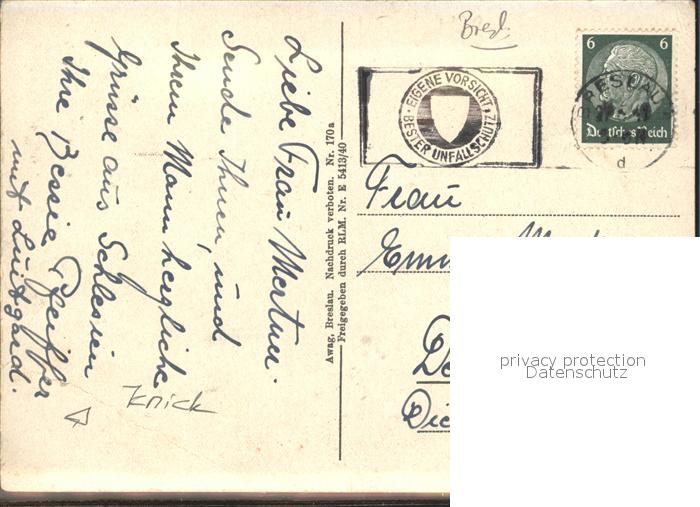 Bresl.
6 6
BRESLAU
Deutsches Reich
d
EIGENE VORSICHT
BESTER UNFALLSCHUTZ
Liebe Frau Mertner.
Sende Ihnen, und
Ihrem Mann herzliche
Grüsse aus Schlesien
Ihre Bessie Pfeiffer
mit Luitgard.
Knick
Awag, Breslau. Nachdruck verboten. Nr. 170a
Freigegeben durch RLM. Nr. E 5413/40
Frau
privacy protection
Datenschutz